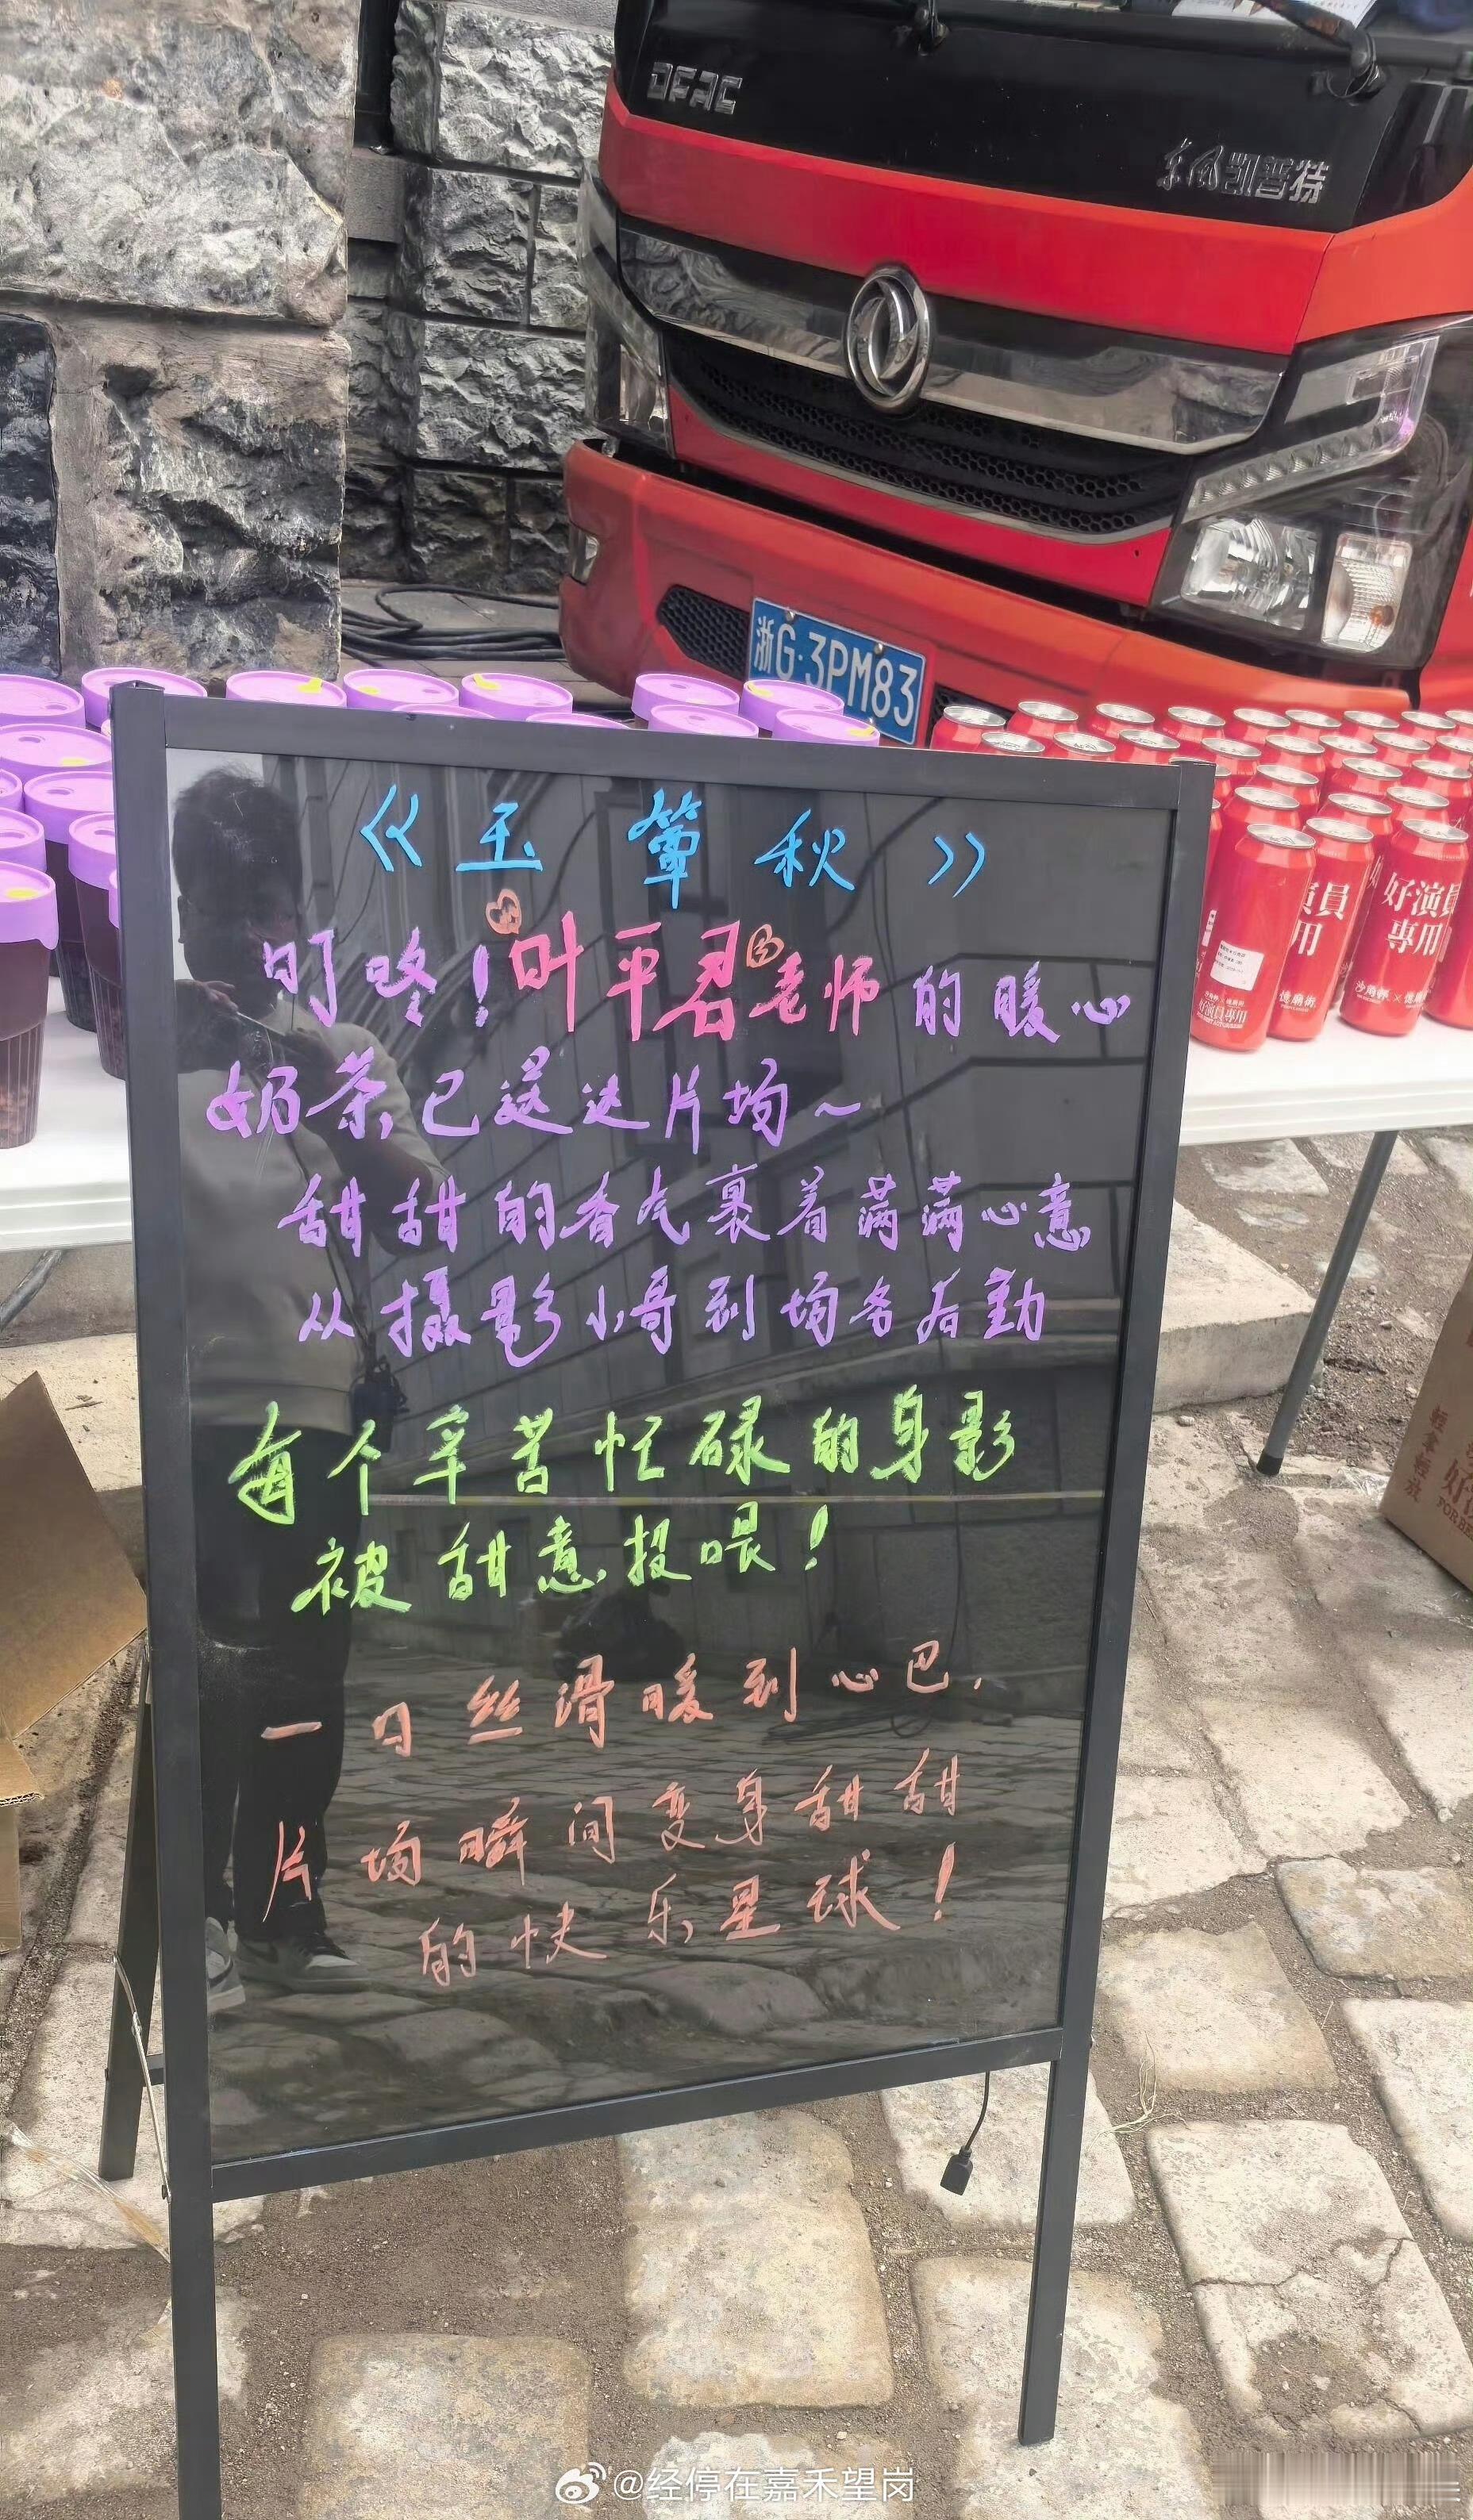 DFAC
东风凯普特
浙G·3PM83
《玉簟秋》
叮咚!叶平君老师的暖心
奶茶,已送达片场~
甜甜的香气裹着满满心意
从摄影小哥到场务后勤
每个辛苦忙碌的身影
被甜意投喂!
一口丝滑暖到心巴,
片场瞬间变身甜甜
的快乐星球!
演員
用
好演員
專用
好演員專用
德廟街
輕拿輕放
@经停在嘉禾望岗